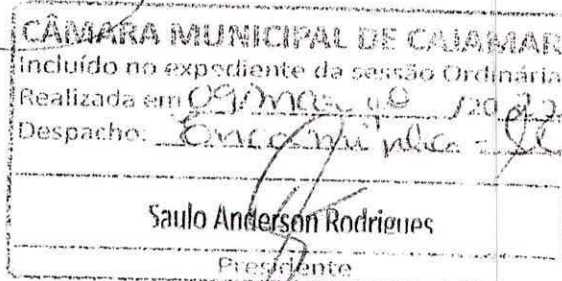 CÂMARA MUNICIPAL DE CAJAMAR
Incluído no expediente da sessão Ordinária
Realizada em 09/março /20
Despacho: Encaminha-se
Saulo Anderson Rodrigues
Presidente